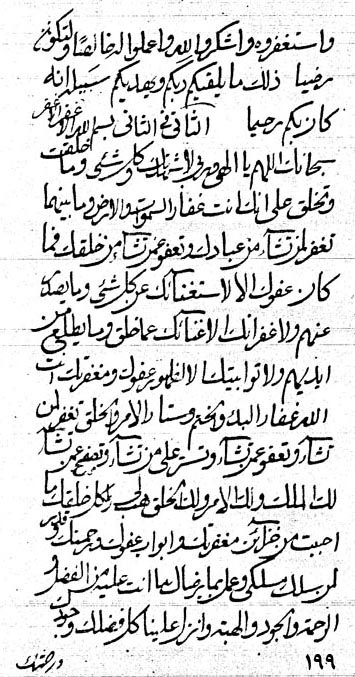 واستغفروه واشكروا لله واعملوا له خالصا ولتكونن
رضيا ذلك ما يلقيكم ربكم ويهديكم سبيله انه
كان بكم رحيما الثاني في الثاني بسم الله الاغفر الاغفر
سبحانك اللهم يا الهي لاشهدنك وكل شيء وما خلقت
وتخلق على انك انت غفار السموات والارض وما بينهما
تغفر لمن تشاء من عبادك وتعفو عمن تشاء من خلقك فما
كان عفوك الا لاستغنائك عن كل شيء وما يصعد
عنهم ولا غفرانك الا لغنائك عما خلق وما يطلع من
ايديهم ولا توابيتك الا لظهور عفوك ومغفرتك انت
الله غفار البدء والختم وستار الامر والخلق تغفر لمن
تشاء وتعفو عمن تشاء وتستر على من تشاء وتصفح عمن تشاء
لك الملك ولك الامر ولك الخلق هب لي ولكل خلقك ما
احببت من خزائن مغفرتك وابواب عفوك ورحمتك
لمن سلك مسلكي وعلى ما يرضى انت عليه من الفضل و
الرحمة والجود والهبة وانزل علينا كل فضلك وجودك
ورحمتك ١٩٩